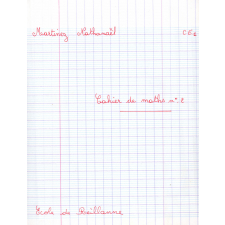 Martinez Nathanaël CE2
Cahier de maths n°2
Ecole de Reillanne